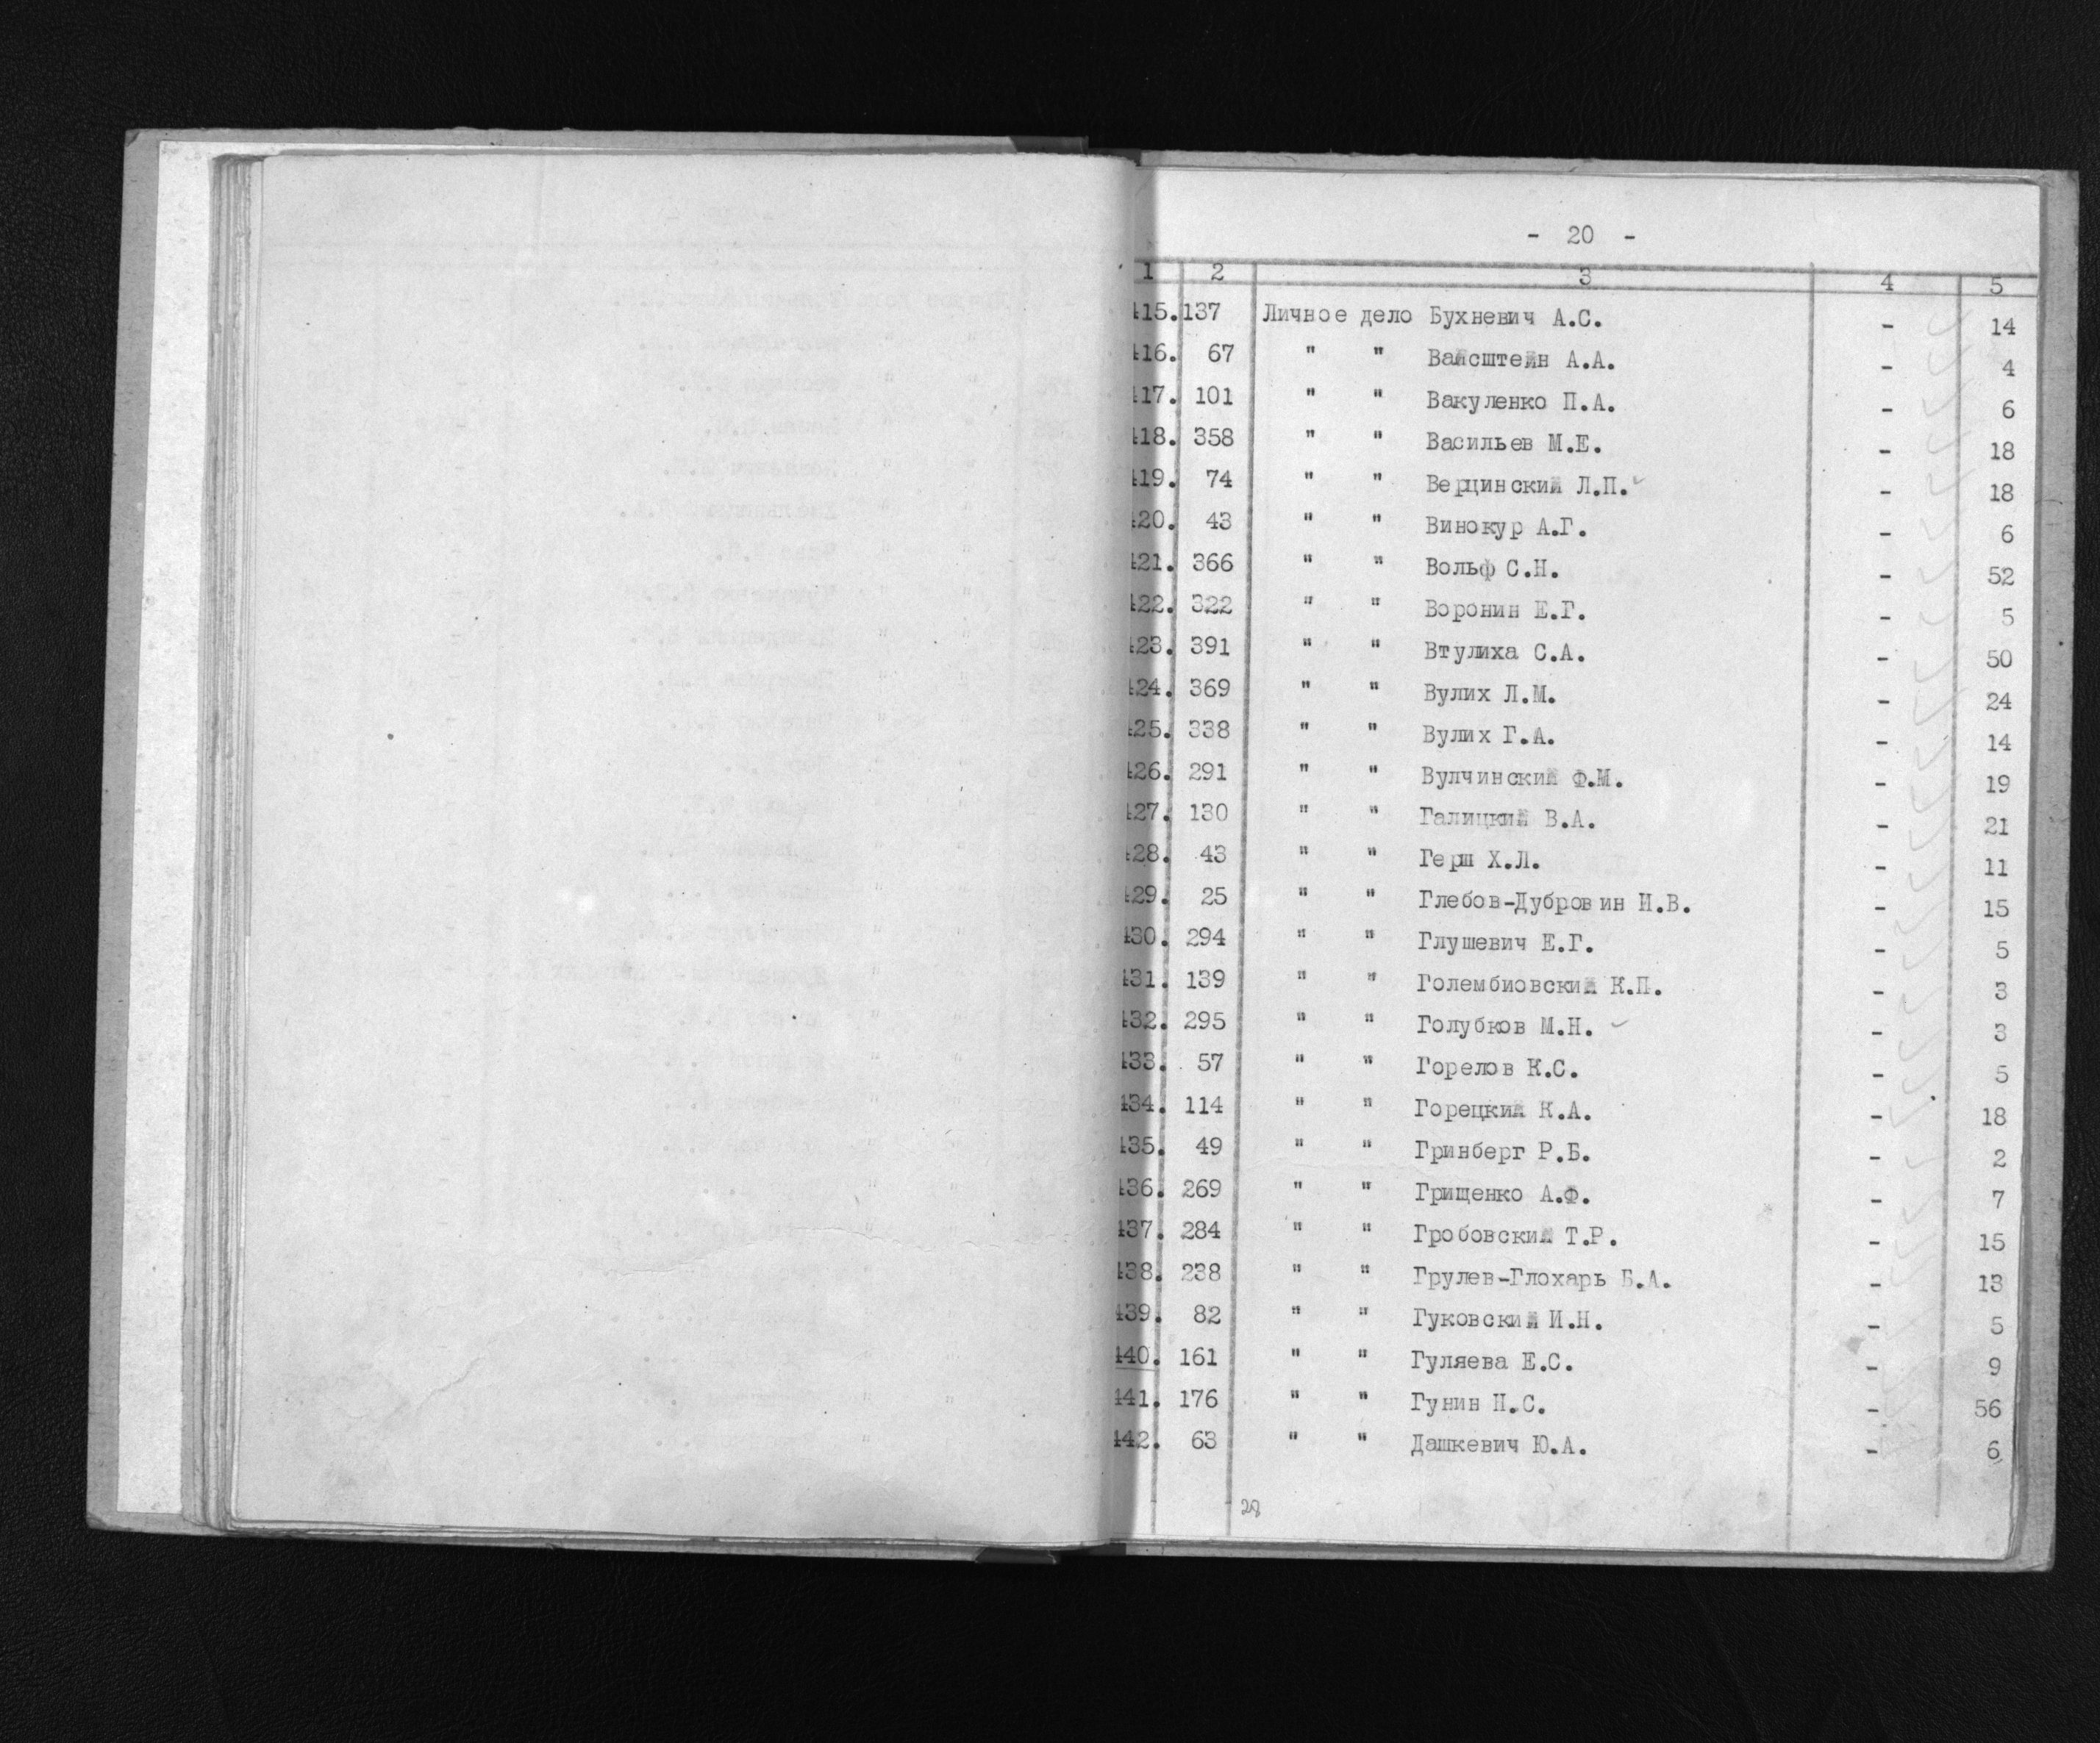 - 20 -
1 2 3 4 5
415. 137 Личное дело Бухневич А.С. - 14
416. 67 " " Вайсштейн А.А. - 4
417. 101 " " Вакуленко П.А. - 6
418. 358 " " Васильев М.Е. - 18
419. 74 " " Верцинский Л.П. - 18
420. 43 " " Винокур А.Г. - 6
421. 366 " " Вольф С.Н. - 52
422. 322 " " Воронин Е.Г. - 5
423. 391 " " Втулиха С.А. - 50
424. 369 " " Вулих Л.М. - 24
425. 338 " " Вулих Г.А. - 14
426. 291 " " Вулчинский Ф.М. - 19
427. 130 " " Галицкий В.А. - 21
428. 43 " " Герш Х.Л. - 11
429. 25 " " Глебов-Дубровин И.В. - 15
430. 294 " " Глушевич Е.Г. - 5
431. 139 " " Голембиовский К.П. - 3
432. 295 " " Голубков М.Н. - 3
433. 57 " " Горелов К.С. - 5
434. 114 " " Горецкий К.А. - 18
435. 49 " " Гринберг Р.Б. - 2
436. 269 " " Грищенко А.Ф. - 7
437. 284 " " Гробовский Т.Р. - 15
438. 238 " " Грулев-Глохарь Б.А. - 13
439. 82 " " Гуковский И.Н. - 5
440. 161 " " Гуляева Е.С. - 9
441. 176 " " Гунин Н.С. - 56
442. 63 " " Дашкевич Ю.А. - 6
28